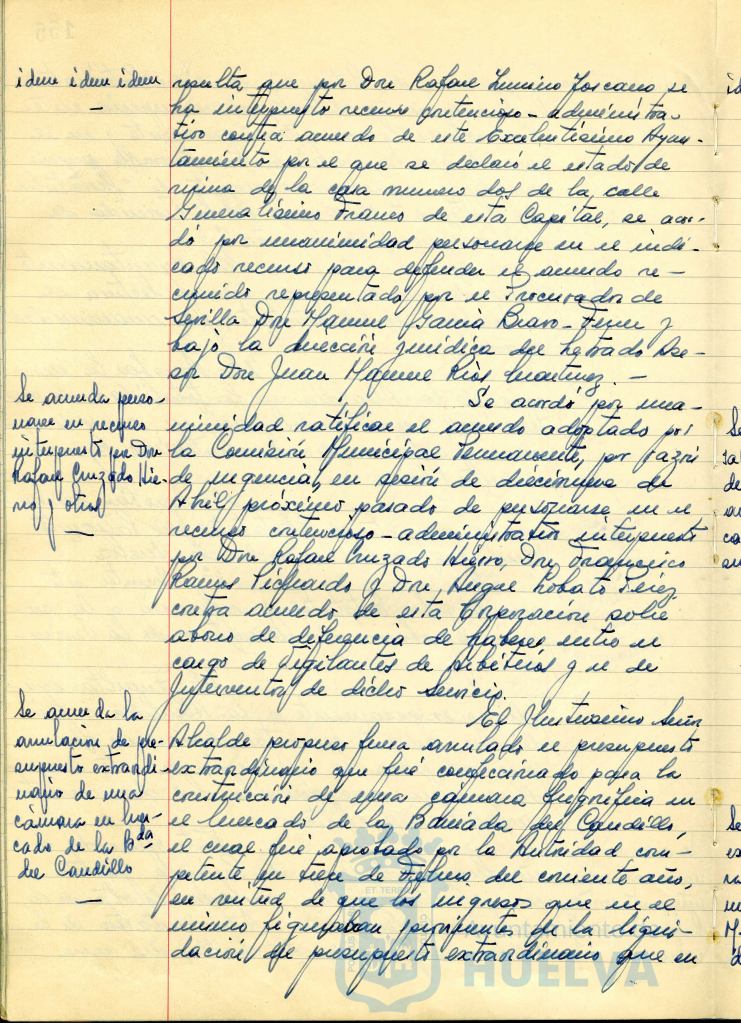 idem idem idem
resulta que por Don Rafael Toscano se
ha interpuesto recurso contencioso-administra-
tivo contra acuerdo de este Excelentísimo Ayun-
tamiento por el que se declaró el estado de
ruina de la casa numero dos de la calle
Generalísimo Franco de esta Capital, se acor-
dó por unanimidad personarse en el indi-
cado recurso para defender el acuerdo re-
currido representado por el Procurador de
Sevilla Don Manuel García Bravo-Ferrer y
bajo la dirección jurídica del Letrado Ase-
sor Don Juan Manuel Ríos Martinez.-
Se acuerda perso-
narse en recurso
interpuesto por Don
Rafael Cruzado Hie-
rro y otros
Se acordó por una-
nimidad ratificar el acuerdo adoptado por
la Comisión Municipal Permanente, por razón
de urgencia, en sesión de diecinueve de
Abril próximo pasado de personarse en el
recurso contencioso-administrativo interpuesto
por Don Rafael Cruzado Hierro, Don Francisco
Ramos Pichardo y Don Lobato Pérez
contra acuerdo de esta Corporación sobre
abono de diferencia de haberes entre el
cargo de Vigilantes de arbitrios y el de
Interventor de dicho servicio.
Se acuerda la
anulación de pre-
supuesto extraordi-
nario de una
cámara en mer-
cado de la Bda
del Caudillo
El Ilustrísimo Señor
Alcalde propuso fuera anulado el presupuesto
extraordinario que fué confeccionado para la
construcción de una camara frigorífica en
el mercado de la Barriada del Caudillo,
el cual fué aprobado por la Autoridad com-
petente en trece de Febrero del corriente año,
en virtud de que los ingresos que en el
mismo figuraban provinientes de la liqui-
dación del presupuesto extraordinario que en
Ayuntamiento
HUELVA